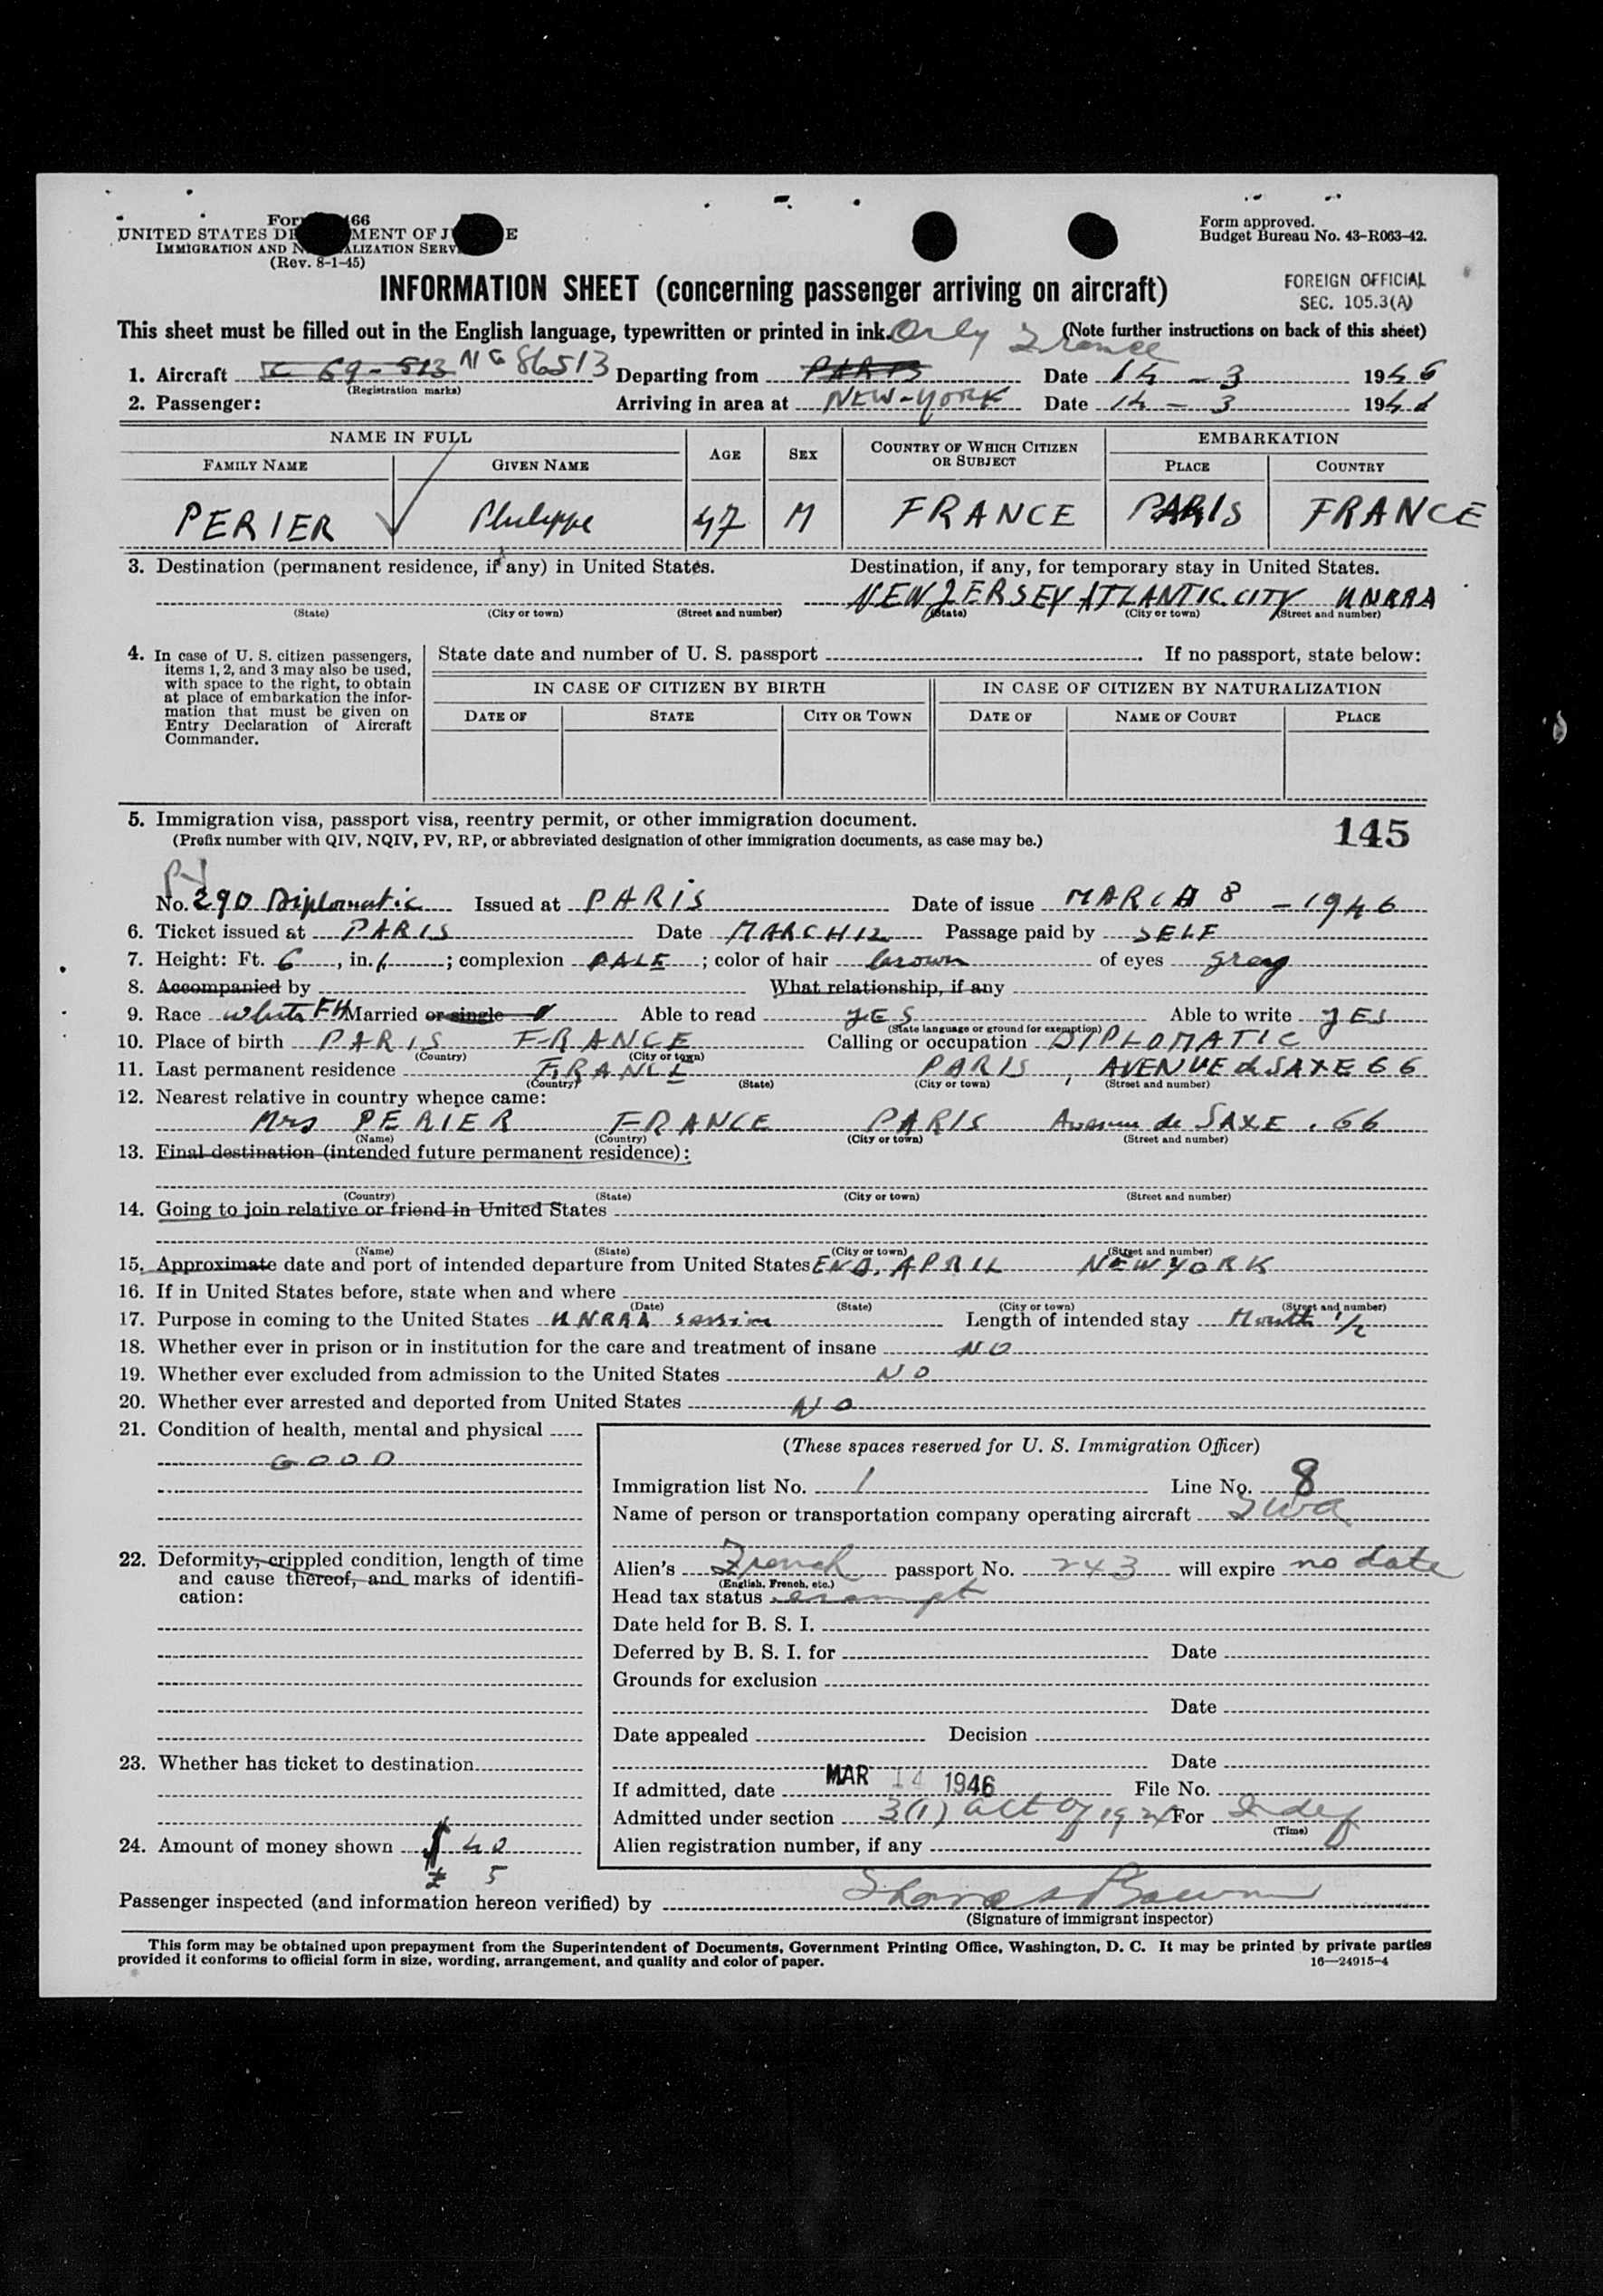 Form 466
UNITED STATES DE MENT OF J E
IMMIGRATION AND N ALIZATION SERV
(Rev. 8-1-45)
Form approved.
Budget Bureau No. 43-R063-42.
INFORMATION SHEET (concerning passenger arriving on aircraft)
FOREIGN OFFICIAL
SEC. 105.3(A)
This sheet must be filled out in the English language, typewritten or printed in ink. (Note further instructions on back of this sheet)
Orly France
1. Aircraft C 69-513 NC 86513 Departing from PARIS Date 14-3 1946
(Registration marks)
2. Passenger: Arriving in area at NEW-YORK Date 14-3 1946
NAME IN FULL AGE SEX COUNTRY OF WHICH CITIZEN OR SUBJECT EMBARKATION
FAMILY NAME GIVEN NAME PLACE COUNTRY
PERIER Philippe 47 M FRANCE PARIS FRANCE
3. Destination (permanent residence, if any) in United States. Destination, if any, for temporary stay in United States.
NEW JERSEY ATLANTIC CITY UNRRA
(State) (City or town) (Street and number) (State) (City or town) (Street and number)
4. In case of U. S. citizen passengers, items 1, 2, and 3 may also be used, with space to the right, to obtain at place of embarkation the information that must be given on Entry Declaration of Aircraft Commander.
State date and number of U. S. passport . If no passport, state below:
IN CASE OF CITIZEN BY BIRTH IN CASE OF CITIZEN BY NATURALIZATION
DATE OF STATE CITY OR TOWN DATE OF NAME OF COURT PLACE
5. Immigration visa, passport visa, reentry permit, or other immigration document.
(Prefix number with QIV, NQIV, PV, RP, or abbreviated designation of other immigration documents, as case may be.)
145
PV
No. 290 Diplomatic Issued at PARIS Date of issue MARCH 8 - 1946
6. Ticket issued at PARIS Date MARCH 12 Passage paid by SELF
7. Height: Ft. 6, in. 1; complexion PALE; color of hair brown of eyes grey
8. Accompanied by What relationship, if any
9. Race white FH Married or single Able to read YES Able to write YES
(State language or ground for exemption)
10. Place of birth PARIS FRANCE Calling or occupation DIPLOMATIC
(Country) (City or town)
11. Last permanent residence FRANCE PARIS, AVENUE de SAXE 66
(Country) (State) (City or town) (Street and number)
12. Nearest relative in country whence came:
Mrs PERIER FRANCE PARIS Avenue de SAXE. 66
(Name) (Country) (City or town) (Street and number)
13. Final destination (intended future permanent residence):
(Country) (State) (City or town) (Street and number)
14. Going to join relative or friend in United States
(Name) (State) (City or town) (Street and number)
15. Approximate date and port of intended departure from United States END. APRIL NEW YORK
16. If in United States before, state when and where
(Date) (State) (City or town) (Street and number)
17. Purpose in coming to the United States UNRRA session Length of intended stay Month 1/2
18. Whether ever in prison or in institution for the care and treatment of insane NO
19. Whether ever excluded from admission to the United States NO
20. Whether ever arrested and deported from United States NO
21. Condition of health, mental and physical
GOOD
22. Deformity, crippled condition, length of time and cause thereof, and marks of identification:
23. Whether has ticket to destination
24. Amount of money shown $ 40
£ 5
(These spaces reserved for U. S. Immigration Officer)
Immigration list No. 1 Line No. 8
Name of person or transportation company operating aircraft TWA
Alien's French passport No. 243 will expire no date
(English, French, etc.)
Head tax status exempt
Date held for B. S. I.
Deferred by B. S. I. for Date
Grounds for exclusion
Date
Date appealed Decision
Date
If admitted, date MAR 14 1946 File No.
Admitted under section 3(1) act of 1924 For Indef
(Time)
Alien registration number, if any
Passenger inspected (and information hereon verified) by
(Signature of immigrant inspector)
This form may be obtained upon prepayment from the Superintendent of Documents, Government Printing Office, Washington, D. C. It may be printed by private parties
provided it conforms to official form in size, wording, arrangement, and quality and color of paper. 16—24915-4